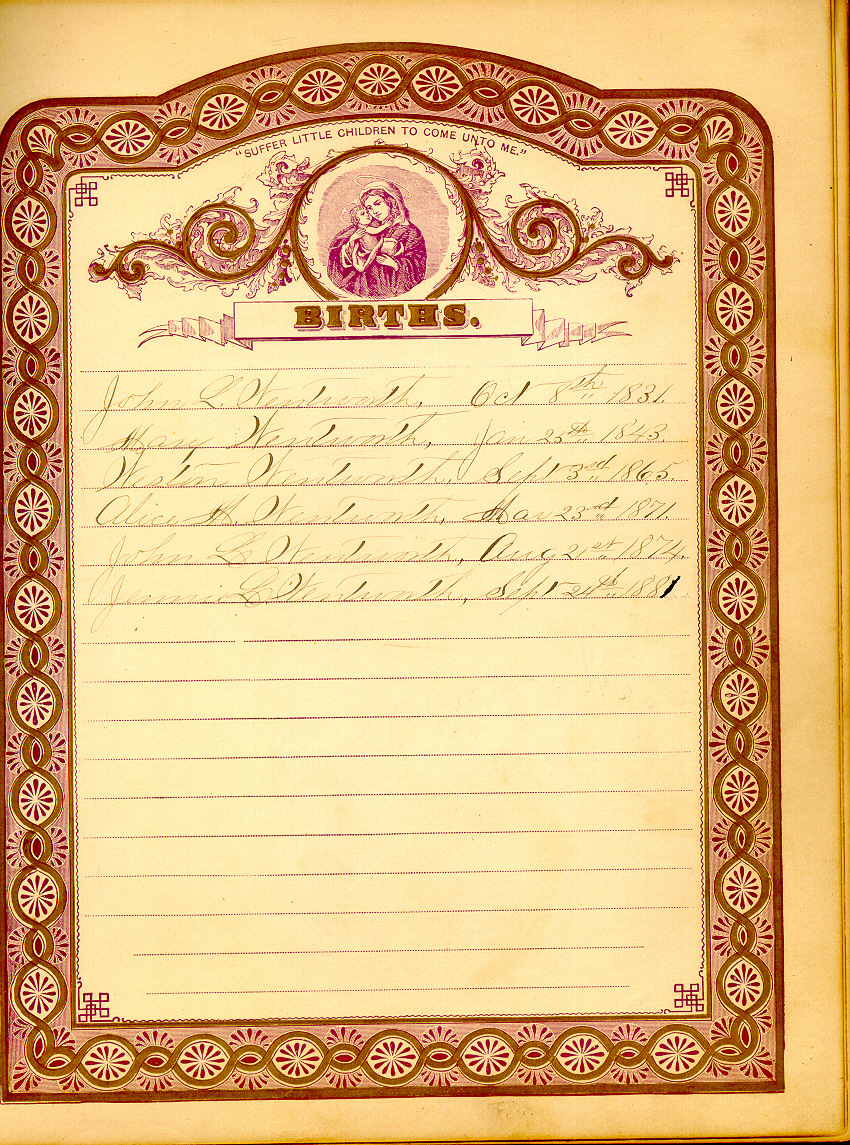 "SUFFER LITTLE CHILDREN TO COME UNTO ME."
BIRTHS.
John L. Wentworth, Oct 8th 1831.
Mary Wentworth, Jan 25th 1843.
Weston Wentworth, Sept 3rd 1865.
Alice M. Wentworth, Mar 23rd 1871.
John L. Wentworth, Aug 21st 1874.
Jennie L. Wentworth, Sept 24th 1881.